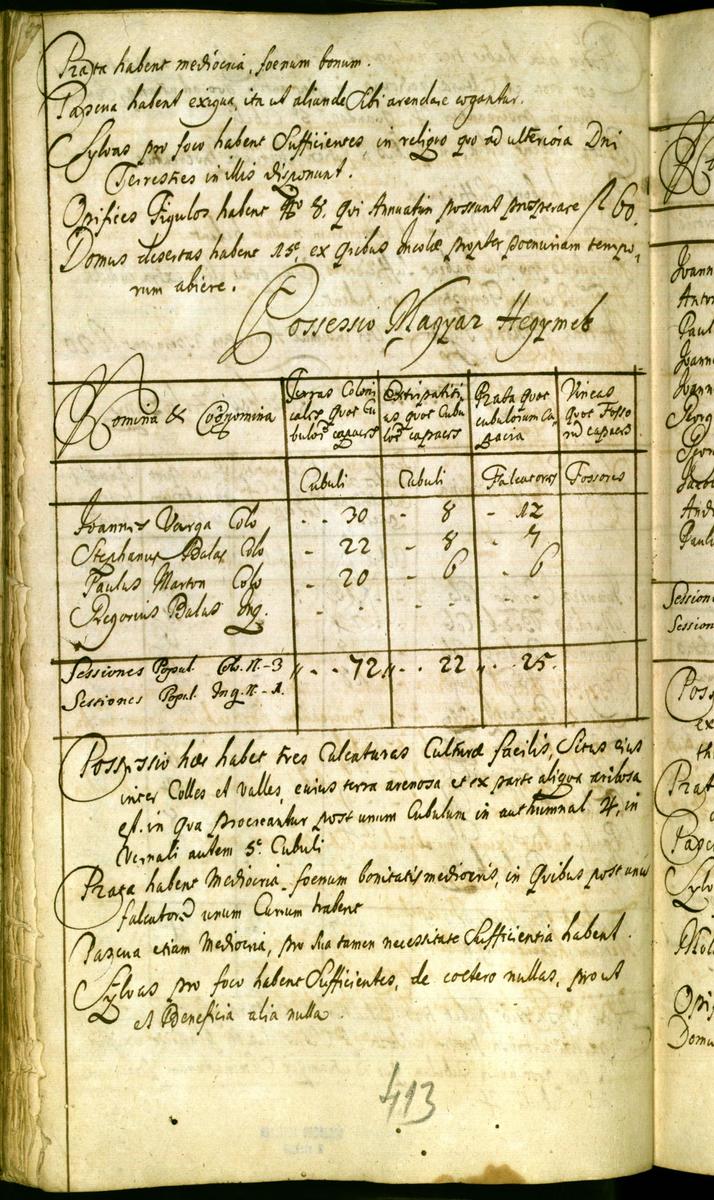 Prata habent mediocria, foenum bonum.
Pascua habent exigua, ita ut aliunde Sibi arendare cogantur.
Sylvas pro foco habent Sufficientes, in reliquo quo ad ulteriora Dni
Terrestres in illis disponunt.
Opifices Figulos habent No 8. qui Annuatim possunt prosperare fl 60.
Domus desertas habent 15. ex quibus Incolae propter poenuriam tempo,
rum abiere.
Possessio Magyar Hegymek
Nomina & Cognomina
Terras Coloni
cales quot Cu
bulorum capaces
Extirpatiti,
as quot Cubu
lorum capaces
Prata quot
cubulorum Ca
pacia
Vineas
quot Fosso
rum capaces
Cubuli Cubuli Falcatores Fossores
Joannes Varga Colo - - 30 - 8 - 12
Stephanus Balas Colo - 22 - 8 - 7
Paulus Marton Colo - 20 - 6 - 6
Gregorius Balas Inq. - - - - - -
Sessiones Popul. Colo. N. - 3 " - - 72 " - - 22 " - 25.
Sessiones Popul. Inq. N. - 1.
Possessio haec habet tres Calcaturas Culturae facilis, Situs eius
inter Colles et valles, cuius terra arenosa et ex parte aliqua
est. in qua procreantur post unum Cubulum in authumnal 4, in
Vernali autem 5. Cubuli
Prata habent Mediocria foenum bonitatis mediocris, in quibus post unum
falcatorem unum Currum habent
Pascua etiam Mediocria, pro sua tamen necessitate Sufficientia habent.
Sylvas pro foco habent Sufficientes, de coetero nullas, prout
et Beneficia alia nulla.
413